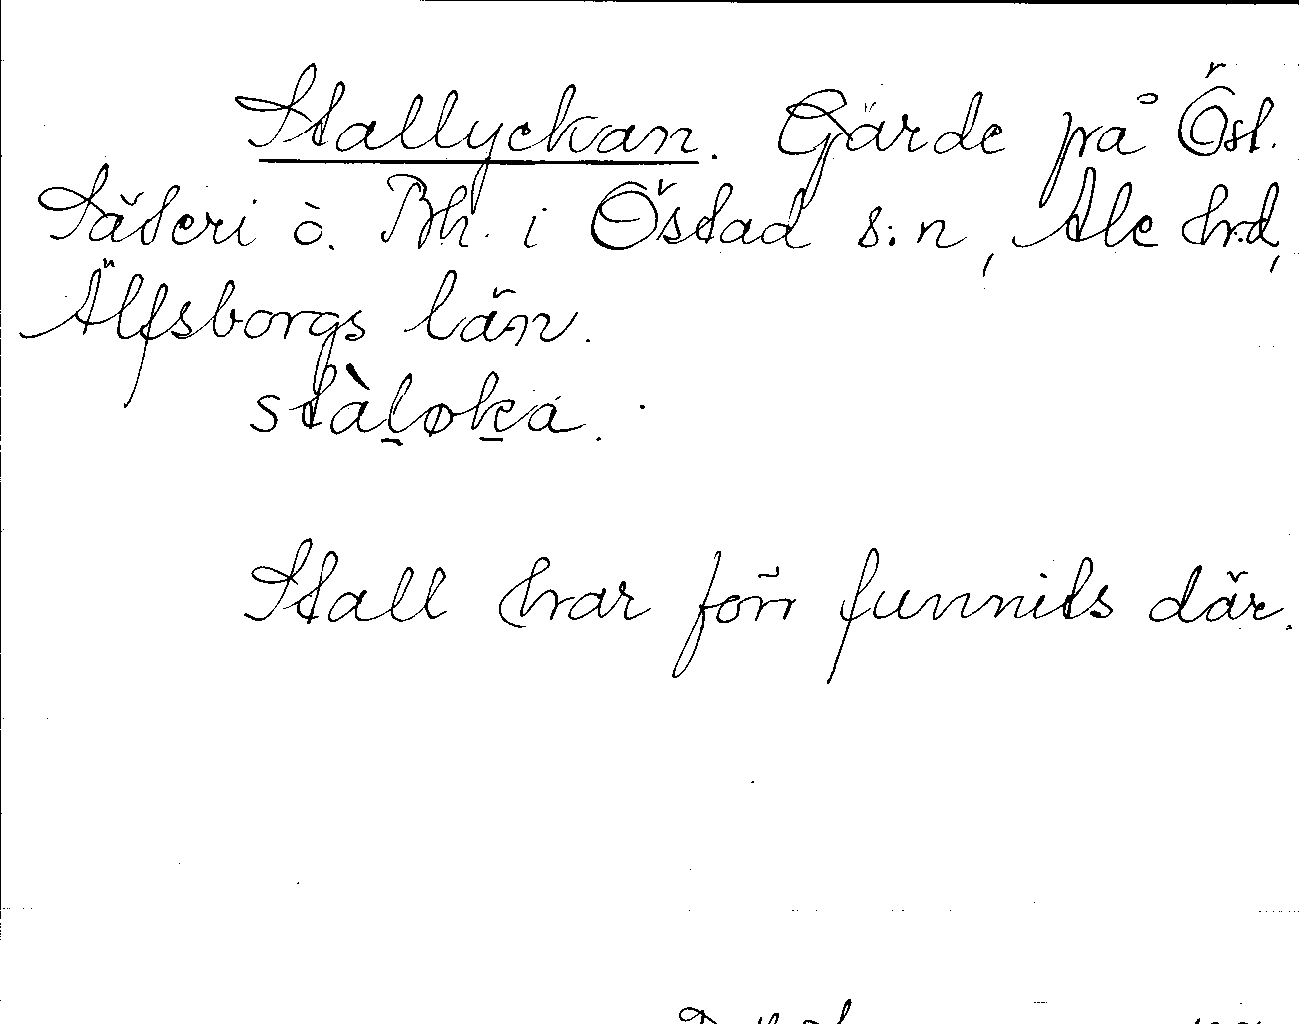 Stallyckan. Gärde på Öst.
Säteri o. Bh. i Östad s:n, Ale hrd,
Älfsborgs län.
stàl̠øk̠a.
Stall har förr funnits där.